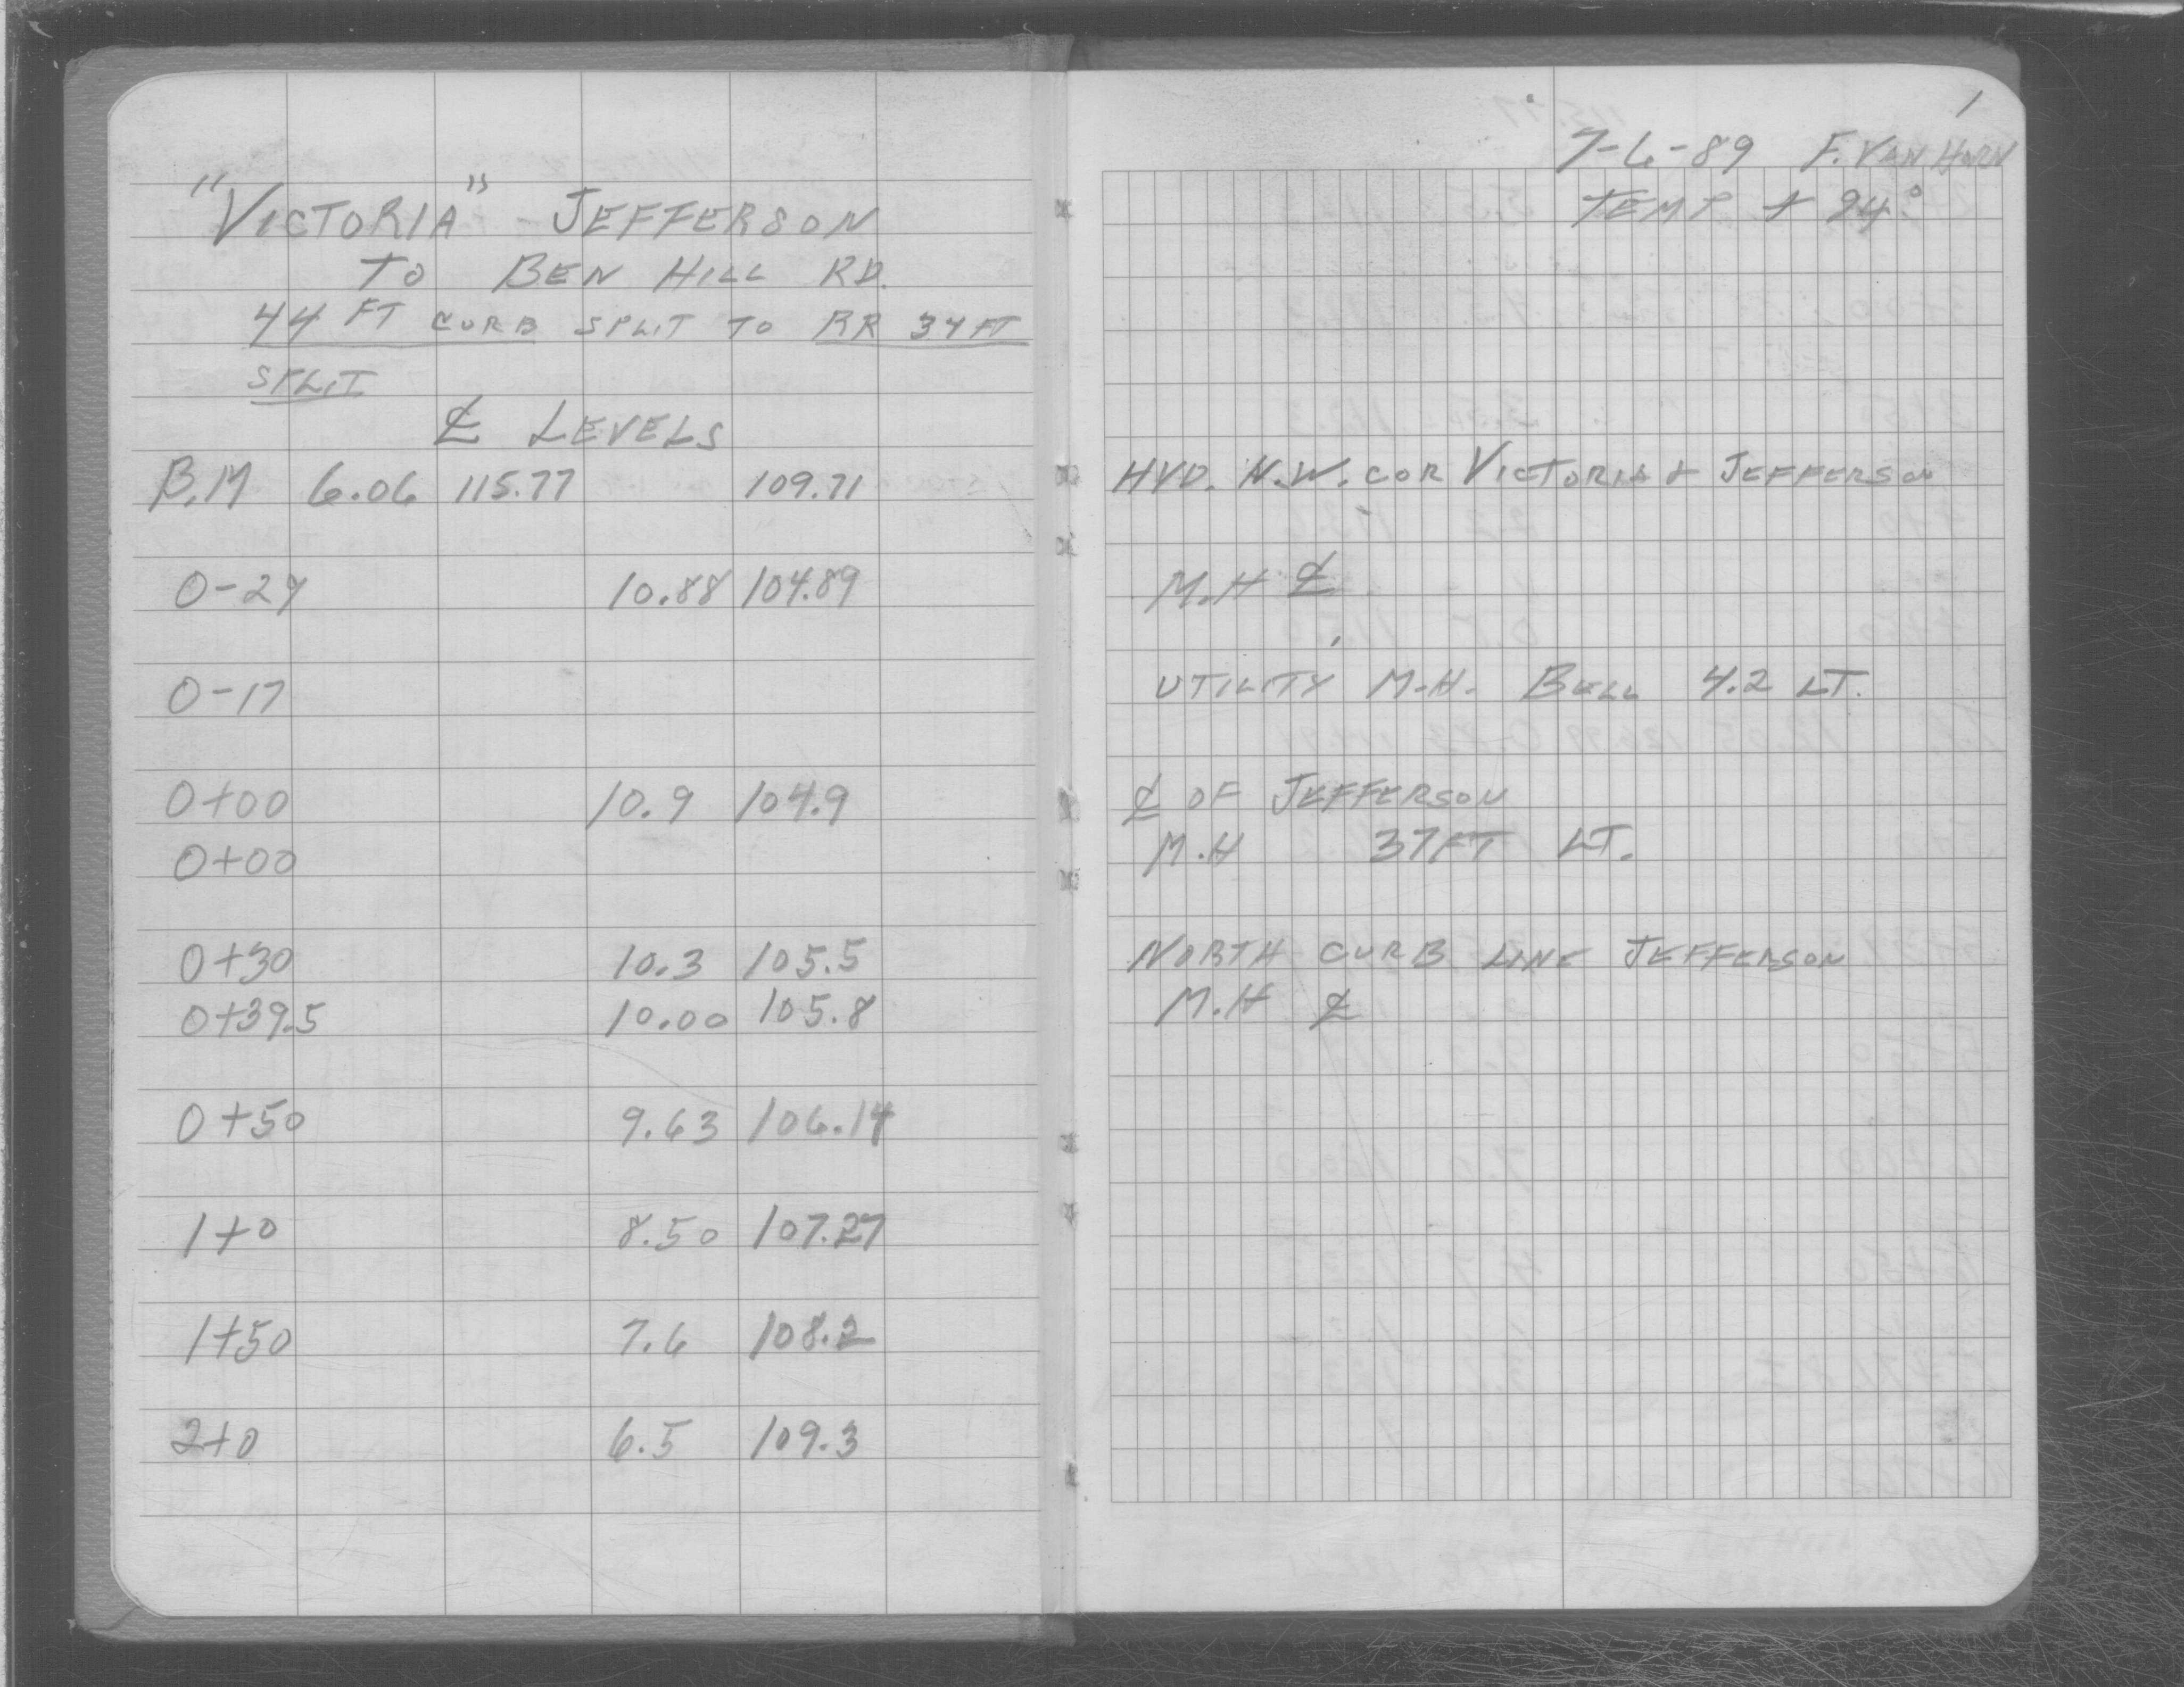 "VICTORIA" - JEFFERSON
TO BEN HILL RD.
44 FT CURB SPLIT TO RR 34 FT
SPLIT
℄ LEVELS
B.M 6.06 115.77 109.71
0-24 10.88 104.89
0-17
0+00 10.9 104.9
0+00
0+30 10.3 105.5
0+39.5 10.00 105.8
0+50 9.63 106.14
1+0 8.50 107.27
1+50 7.6 108.2
2+0 6.5 109.3
1
7-6-89 F. VAN HORN
TEMP + 94°
HYD. N.W. COR VICTORIA + JEFFERSON
M.H ℄
UTILITY M.H. BELL 4.2 LT.
℄ OF JEFFERSON
M.H 37FT LT.
NORTH CURB LINE JEFFERSON
M.H ℄